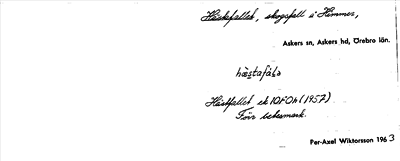 Hästefallet, skogsfall i Himmer,
Askers sn, Askers hd, Örebro län.
hæstafáḷə
Hästfallet ek 10F0h (1957)
Förr betesmark.
Per-Axel Wiktorsson 1963